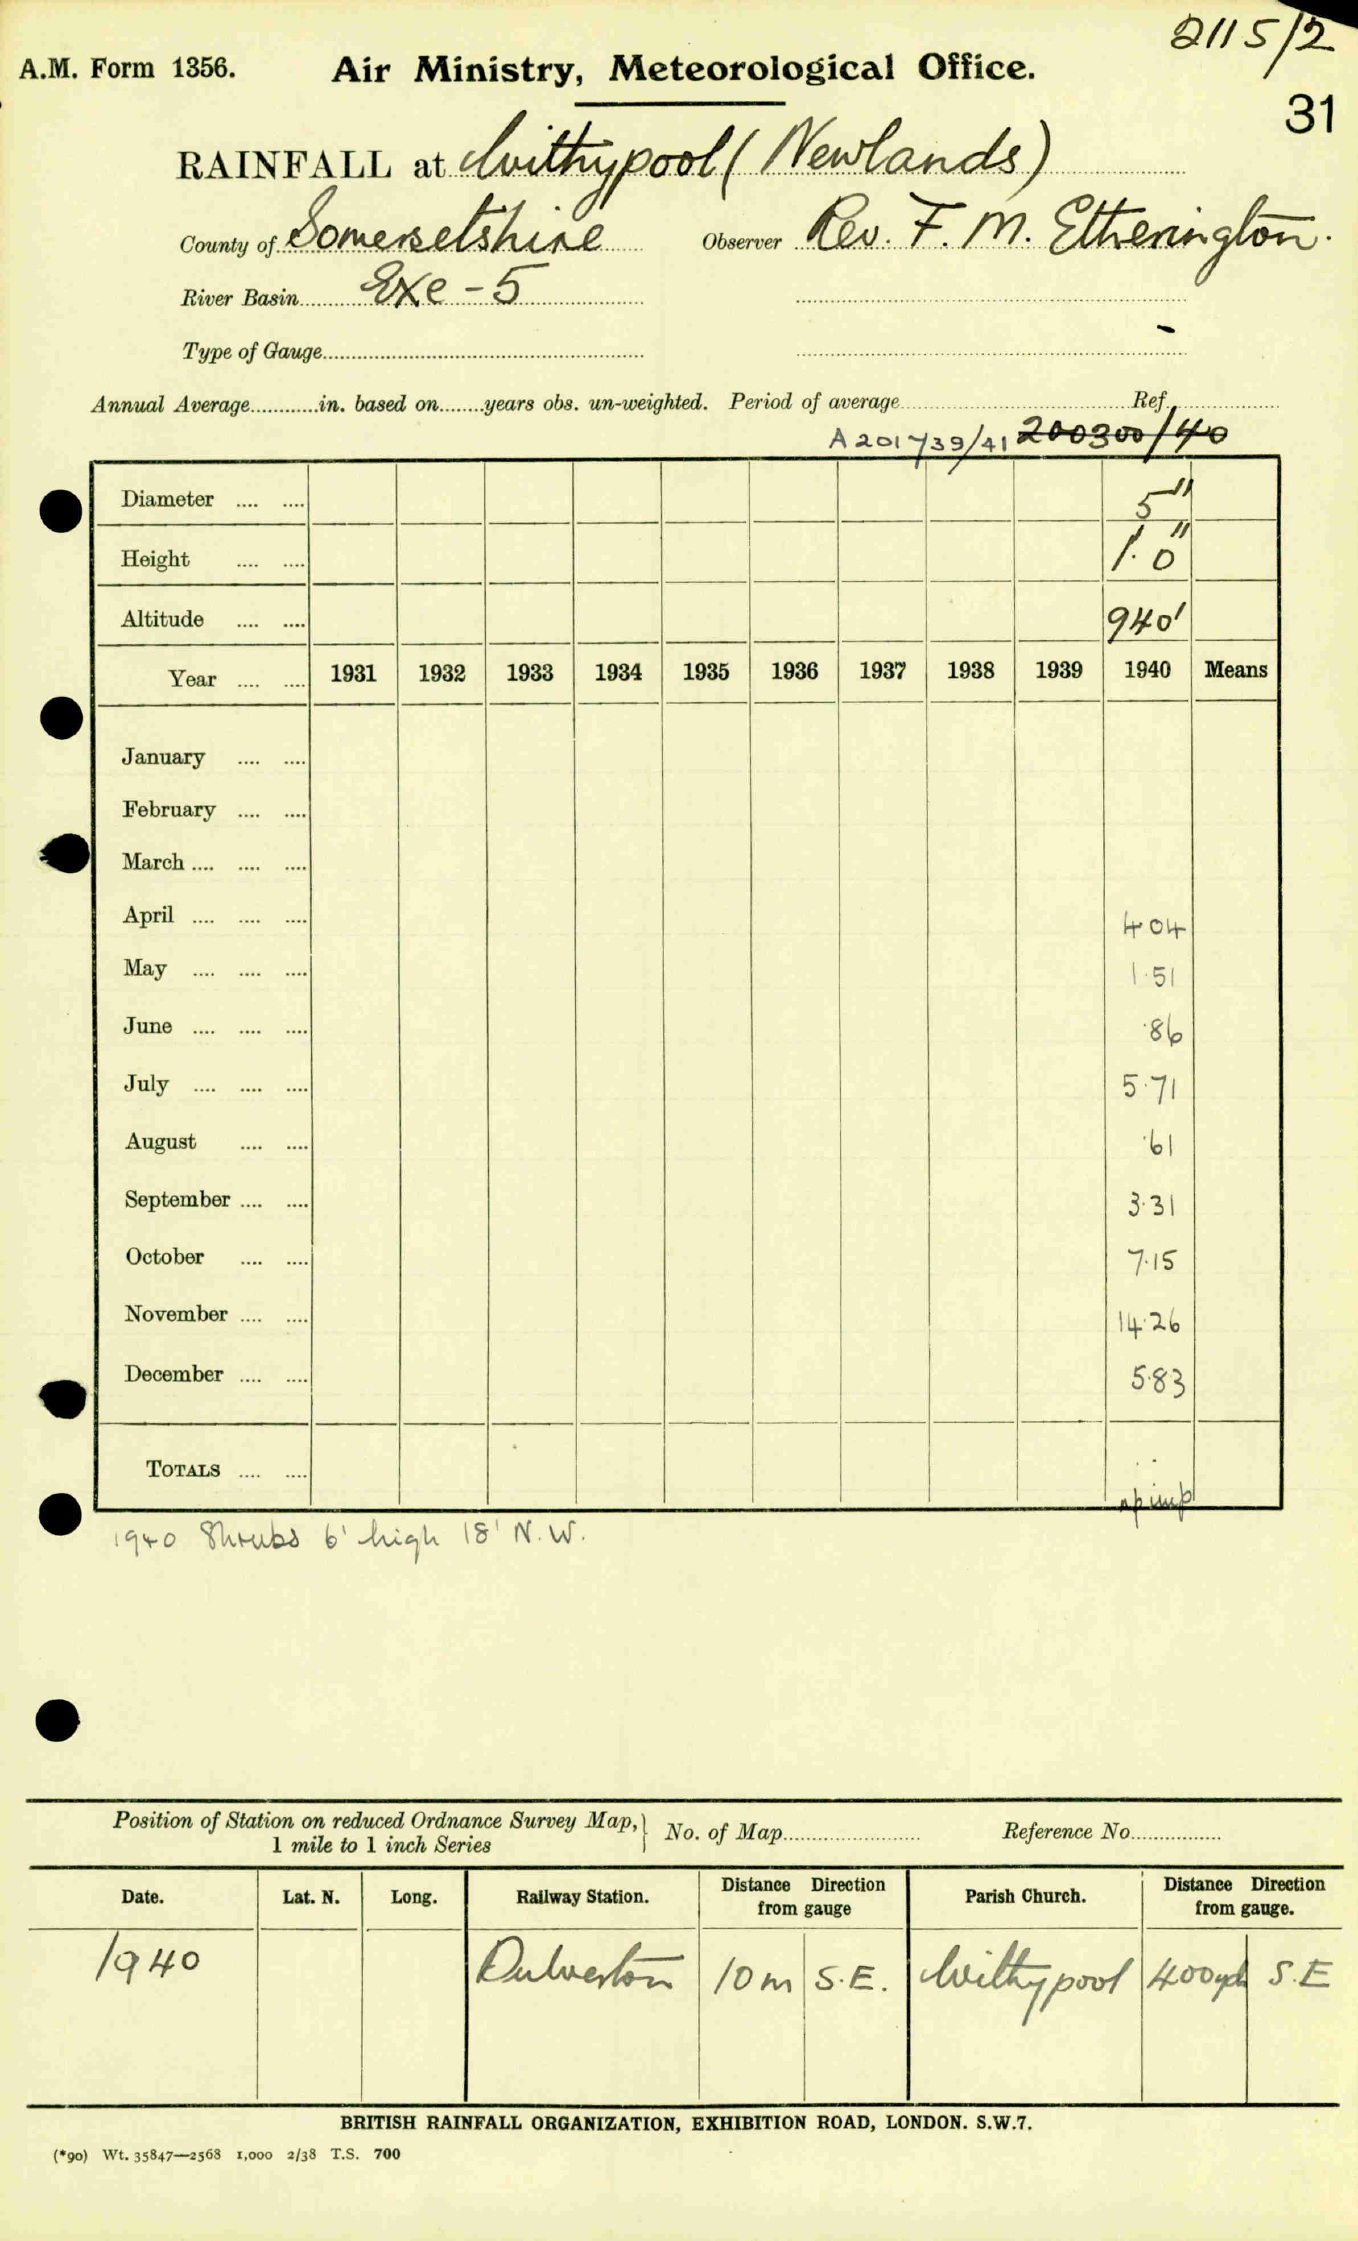 2115/2
A.M. Form 1356. Air Ministry, Meteorological Office.
31
RAINFALL at Withypool (Newlands)
County of Somersetshire Observer Rev. F. M. Etherington.
River Basin Exe - 5
Type of Gauge
Annual Average in. based on years obs. un-weighted. Period of average Ref.
A 201739/41 200300/40
Diameter 5"
Height 1'. 0"
Altitude 940'
Year 1931 1932 1933 1934 1935 1936 1937 1938 1939 1940 Means
January
February
March
April 4.04
May 1.51
June .86
July 5.71
August .61
September 3.31
October 7.15
November 14.26
December 5.83
TOTALS
1940 Shrubs 6' high 18' N.W.
Position of Station on reduced Ordnance Survey Map, 1 mile to 1 inch Series No. of Map Reference No.
Date. Lat. N. Long. Railway Station. Distance Direction from gauge Parish Church. Distance Direction from gauge.
1940 Dulverton 10 m S.E. Withypool 400 yds S.E
BRITISH RAINFALL ORGANIZATION, EXHIBITION ROAD, LONDON. S.W.7.
(*90) Wt. 35847—2568 1,000 2/38 T.S. 700